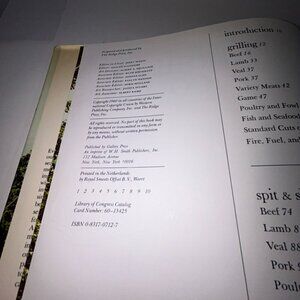 Prepared and produced by
The Ridge Press, Inc.
Copyright 1960 in all countries of the Inter-
national Copyright Union by Western
Publishing Company, Inc. and The Ridge
Press, Inc.
All rights reserved. No part of this book may
be reproduced or transmitted in any form or
by any means, without written permission
from the Publisher.
Published by Gallery Press
An imprint of W. H. Smith Publishers, Inc.
112 Madison Avenue
New York, New York 10016
Printed in the Netherlands
by Royal Smeets Offset B.V., Weert
1 2 3 4 5 6 7 8 9 10
Library of Congress Catalog
Card Number: 60-13425
ISBN 0-8317-0712-7
introduction
grilling 12
Beef 16
Lamb 33
Veal 37
Pork 37
Variety Meats 42
Game 47
Poultry and Fowl
Fish and Seafood
Standard Cuts
Fire, Fuel, an
spit & s
Beef 74
Lamb 8
Veal 88
Pork
Poul